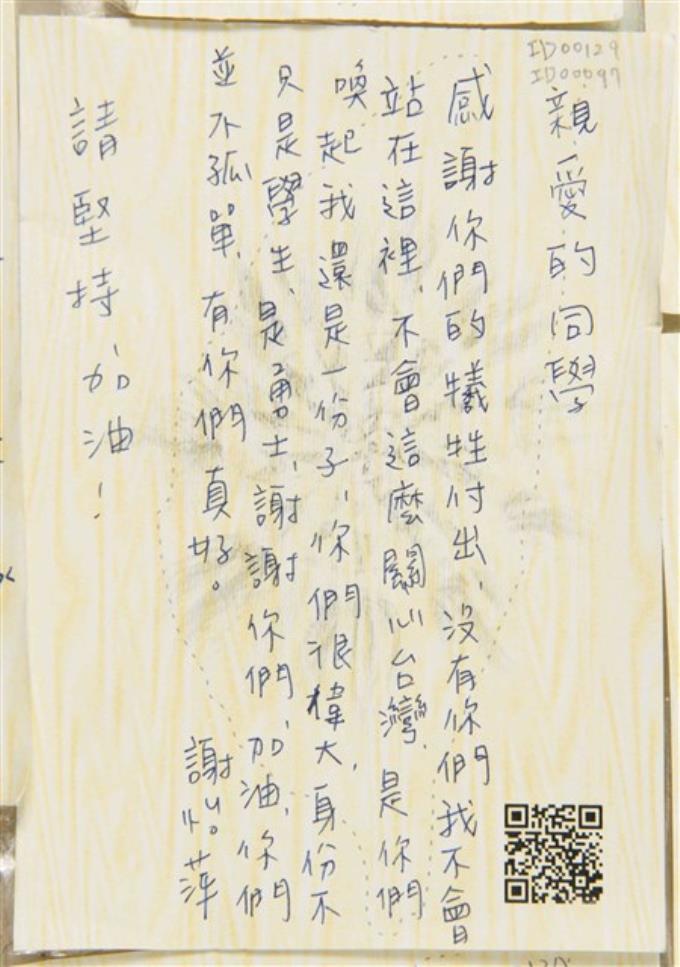 ID00129
ID00097
親愛的同學
感謝你們的犧牲付出、沒有你們我不會
站在這裡、不會這麼關心台灣、是你們
喚起我還是一份子、你們很偉大、身份不
只是學生、是勇士、謝謝你們、加油、你們
並不孤單、有你們真好。
請堅持加油!
謝怡萍